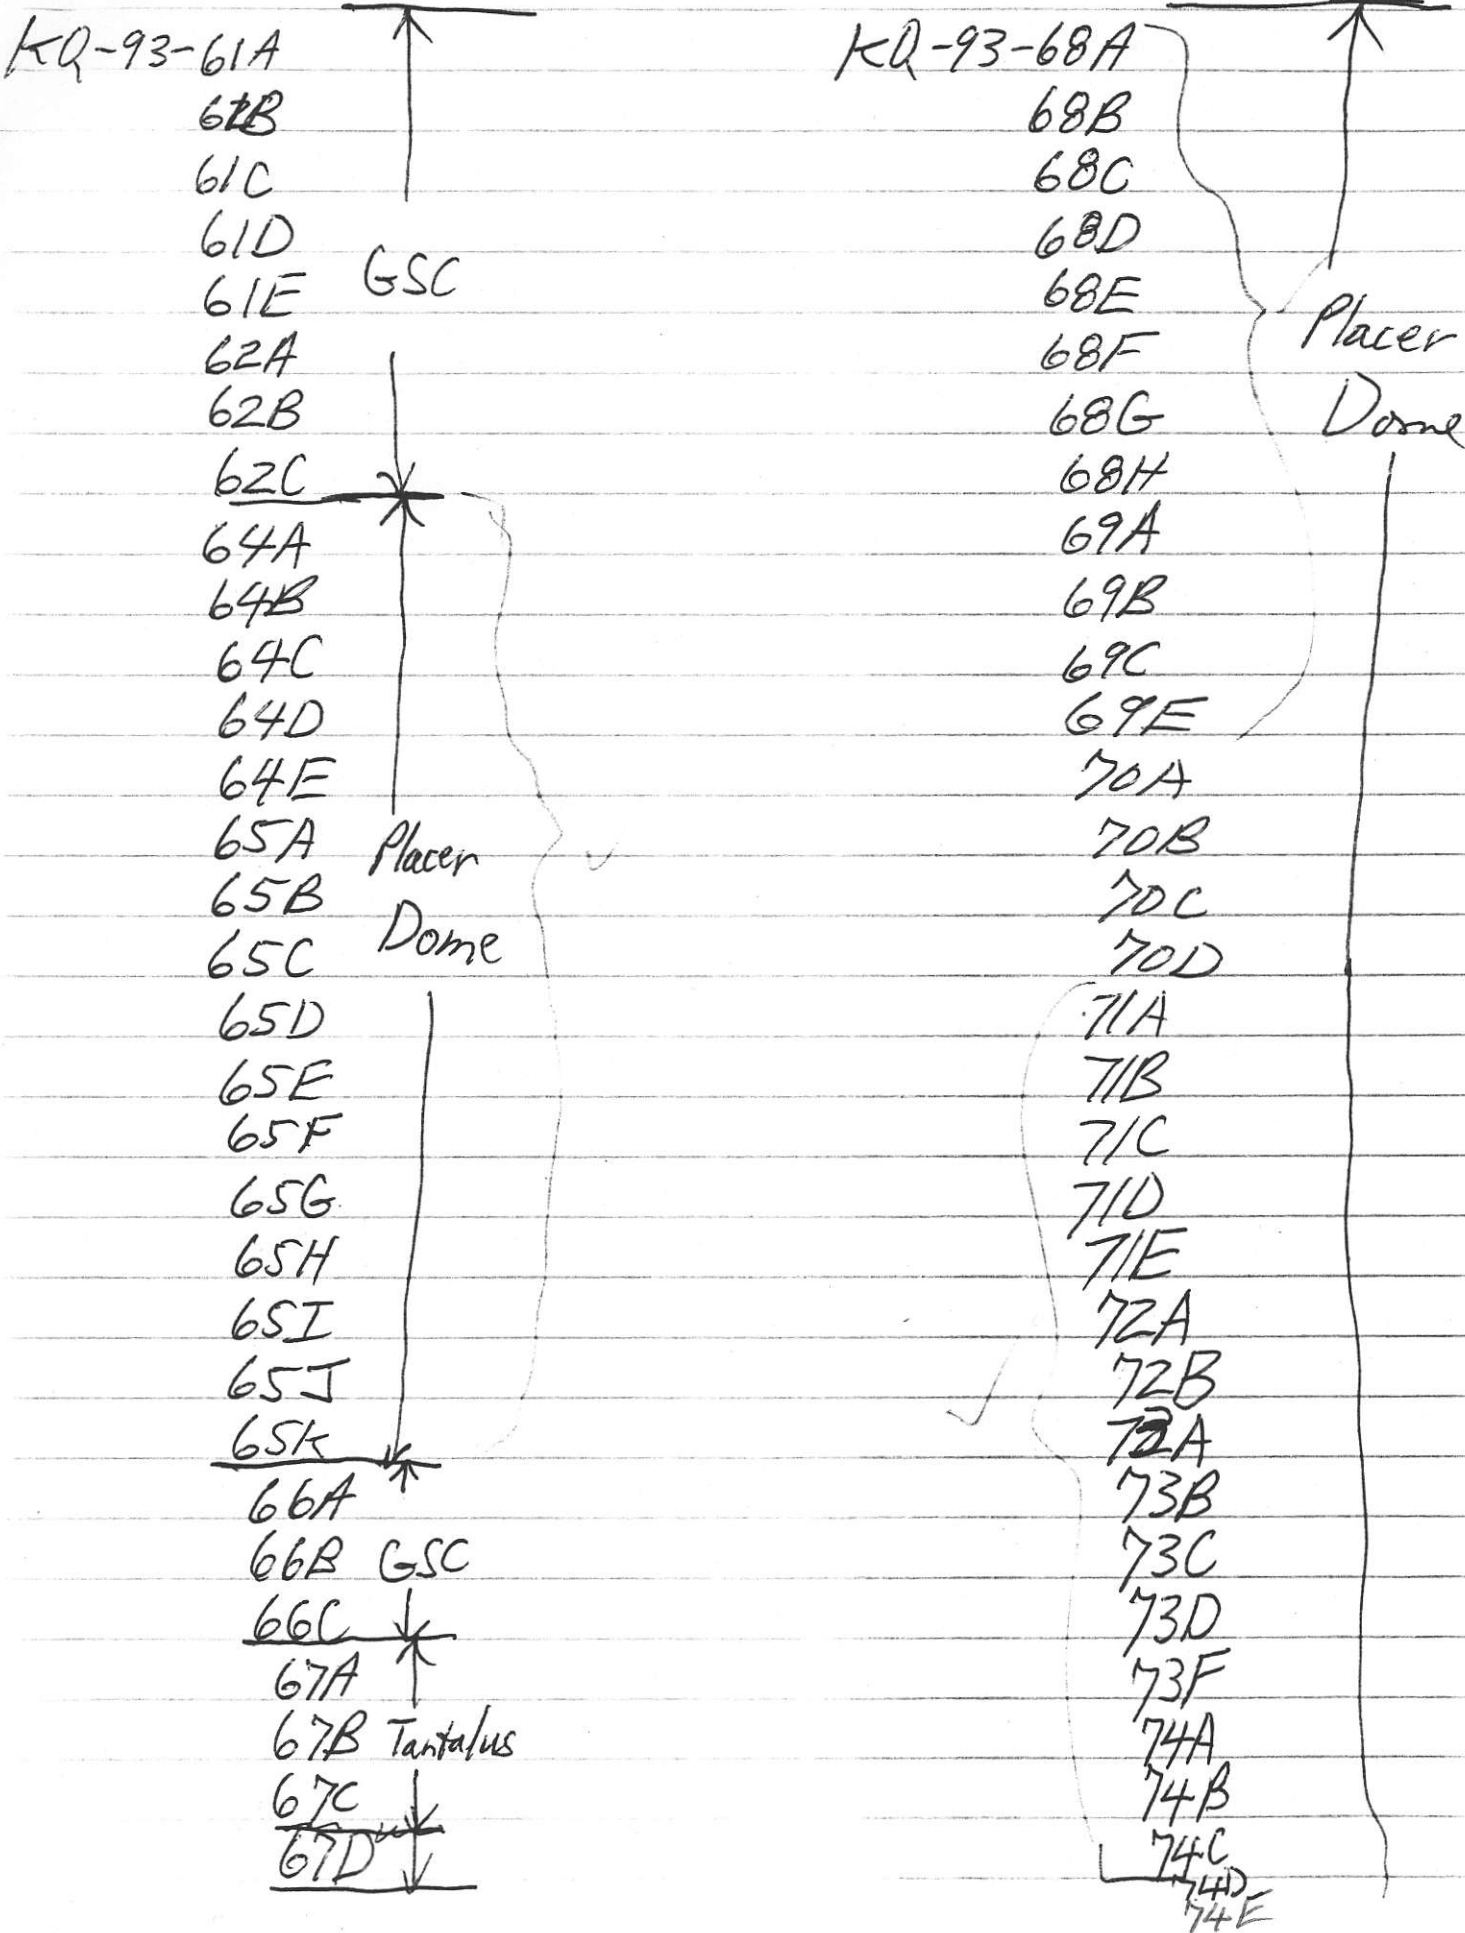 KQ-93-61A
61B
61C
61D
GSC
61E
62A
62B
62C
64A
64B
64C
64D
64E
65A Placer
65B
65C Dome
65D
65E
65F
65G
65H
65I
65J
65K
66A
66B GSC
66C
67A
67B Tantalus
67C
67D
KQ-93-68A
68B
68C
68D
68E
Placer
68F
68G Dome
68H
69A
69B
69C
69E
70A
70B
70C
70D
71A
71B
71C
71D
71E
72A
72B
73A
73B
73C
73D
73F
74A
74B
74C
74D
74E